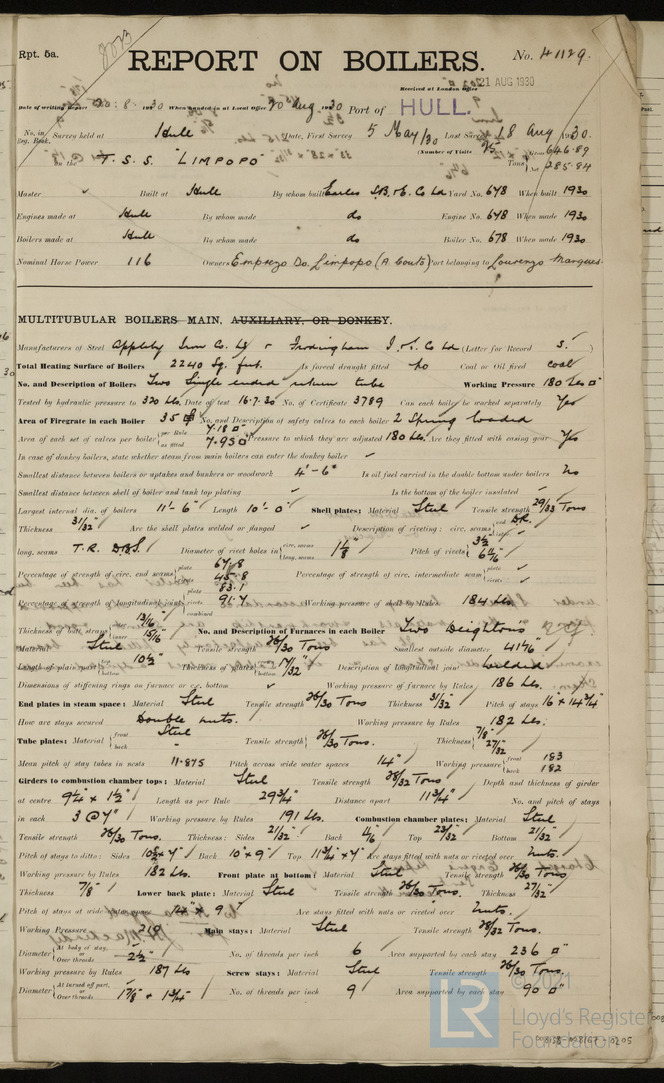 Rpt. 5a.
REPORT ON BOILERS.
No. 41129.
Received at London Office 21 AUG 1930
Date of writing Report 20.8.1930 When handed in at Local Office 20 Aug 1930 Port of HULL.
No. in Reg. Book. Survey held at Hull Date, First Survey 5 May/30 Last Survey 18 Aug 1930.
(Number of Visits 25) Gross 646.89
on the T.S.S. "LIMPOPO" Tons Net 285.84
Master Built at Hull By whom built Earles S.B. & E. Co Ld Yard No. 678 When built 1930
Engines made at Hull By whom made do Engine No. 678 When made 1930
Boilers made at Hull By whom made do Boiler No. 678 When made 1930
Nominal Horse Power 116 Owners Empreza Do. Limpopo (A. Couto) Port belonging to Lourenzo Marques
MULTITUBULAR BOILERS MAIN, AUXILIARY, OR DONKEY.
Manufacturers of Steel Appleby Iron Co. Ld & Frodingham I. & S. Co Ld (Letter for Record S.)
Total Heating Surface of Boilers 2240 Sq. feet. Is forced draught fitted No Coal or Oil fired coal
No. and Description of Boilers Two Single ended return tube Working Pressure 180 Lbs □"
Tested by hydraulic pressure to 320 Lbs. Date of test 16.7.30 No. of Certificate 3789 Can each boiler be worked separately Yes
Area of Firegrate in each Boiler 35 No. and Description of safety valves to each boiler 2 Spring loaded
Area of each set of valves per boiler per Rule 7.18 □" as fitted 7.95 □" Pressure to which they are adjusted 180 Lbs. Are they fitted with easing gear Yes
In case of donkey boilers, state whether steam from main boilers can enter the donkey boiler
Smallest distance between boilers or uptakes and bunkers or woodwork 4'-6" Is oil fuel carried in the double bottom under boilers No
Smallest distance between shell of boiler and tank top plating Is the bottom of the boiler insulated
Largest internal dia. of boilers 11'-6" Length 10'-0" Shell plates: Material Steel Tensile strength 29/33 Tons
Thickness 31/32" Are the shell plates welded or flanged Description of riveting: circ. seams end D.R. inter.
long. seams T.R. D.B.S. Diameter of rivet holes in circ. seams long. seams 1 1/8" Pitch of rivets 3 1/2" 6 3/4"
Percentage of strength of circ. end seams plate 67.8 rivets 45.8 Percentage of strength of circ. intermediate seam plate rivets
Percentage of strength of longitudinal joint plate 83.1 rivets 91.7 combined Working pressure of shell by Rules 184 Lbs
Thickness of butt straps outer 13/16" inner 15/16" No. and Description of Furnaces in each Boiler Two Deightons
Material Steel Tensile strength 26/30 Tons Smallest outside diameter 41 7/16"
Length of plain part top bottom 10 1/2" Thickness of plates crown bottom 17/32" Description of longitudinal joint welded
Dimensions of stiffening rings on furnace or c.c. bottom Working pressure of furnace by Rules 186 Lbs.
End plates in steam space: Material Steel Tensile strength 26/30 Tons Thickness 31/32" Pitch of stays 16" x 14 3/4"
How are stays secured Double nuts. Working pressure by Rules 182 Lbs.
Tube plates: Material front Steel back " Tensile strength 26/30 Tons. Thickness 7/8" 27/32"
Mean pitch of stay tubes in nests 11.875 Pitch across wide water spaces 14" Working pressure front 183 back 182
Girders to combustion chamber tops: Material Steel Tensile strength 28/32 Tons Depth and thickness of girder
at centre 9 1/4" x 1 1/2" Length as per Rule 29 3/4" Distance apart 11 3/4" No. and pitch of stays
in each 3 @ 7" Working pressure by Rules 191 Lbs. Combustion chamber plates: Material Steel
Tensile strength 26/30 Tons. Thickness: Sides 21/32" Back 11/16" Top 23/32" Bottom 21/32"
Pitch of stays to ditto: Sides Back 10" x 9" Top 11 3/4" x 7" Are stays fitted with nuts or riveted over Nuts.
Working pressure by Rules 182 Lbs. Front plate at bottom: Material Steel Tensile strength 26/30 Tons
Thickness 7/8" Lower back plate: Material Steel Tensile strength 26/30 Tons. Thickness 27/32"
Pitch of stays at wide water space 14" x 9" Are stays fitted with nuts or riveted over Nuts.
Working Pressure 210 Main stays: Material Steel Tensile strength 28/32 Tons.
Diameter At body of stay, or Over threads 2 1/2" No. of threads per inch 6 Area supported by each stay 236 □"
Working pressure by Rules 187 Lbs Screw stays: Material Steel Tensile strength 26/30 Tons.
Diameter At turned off part, or Over threads 1 7/8" + 1 3/4" No. of threads per inch 9 Area supported by each stay 90 □"
© 2021
LR
Lloyd's Register
Foundation
008158-008167-0205